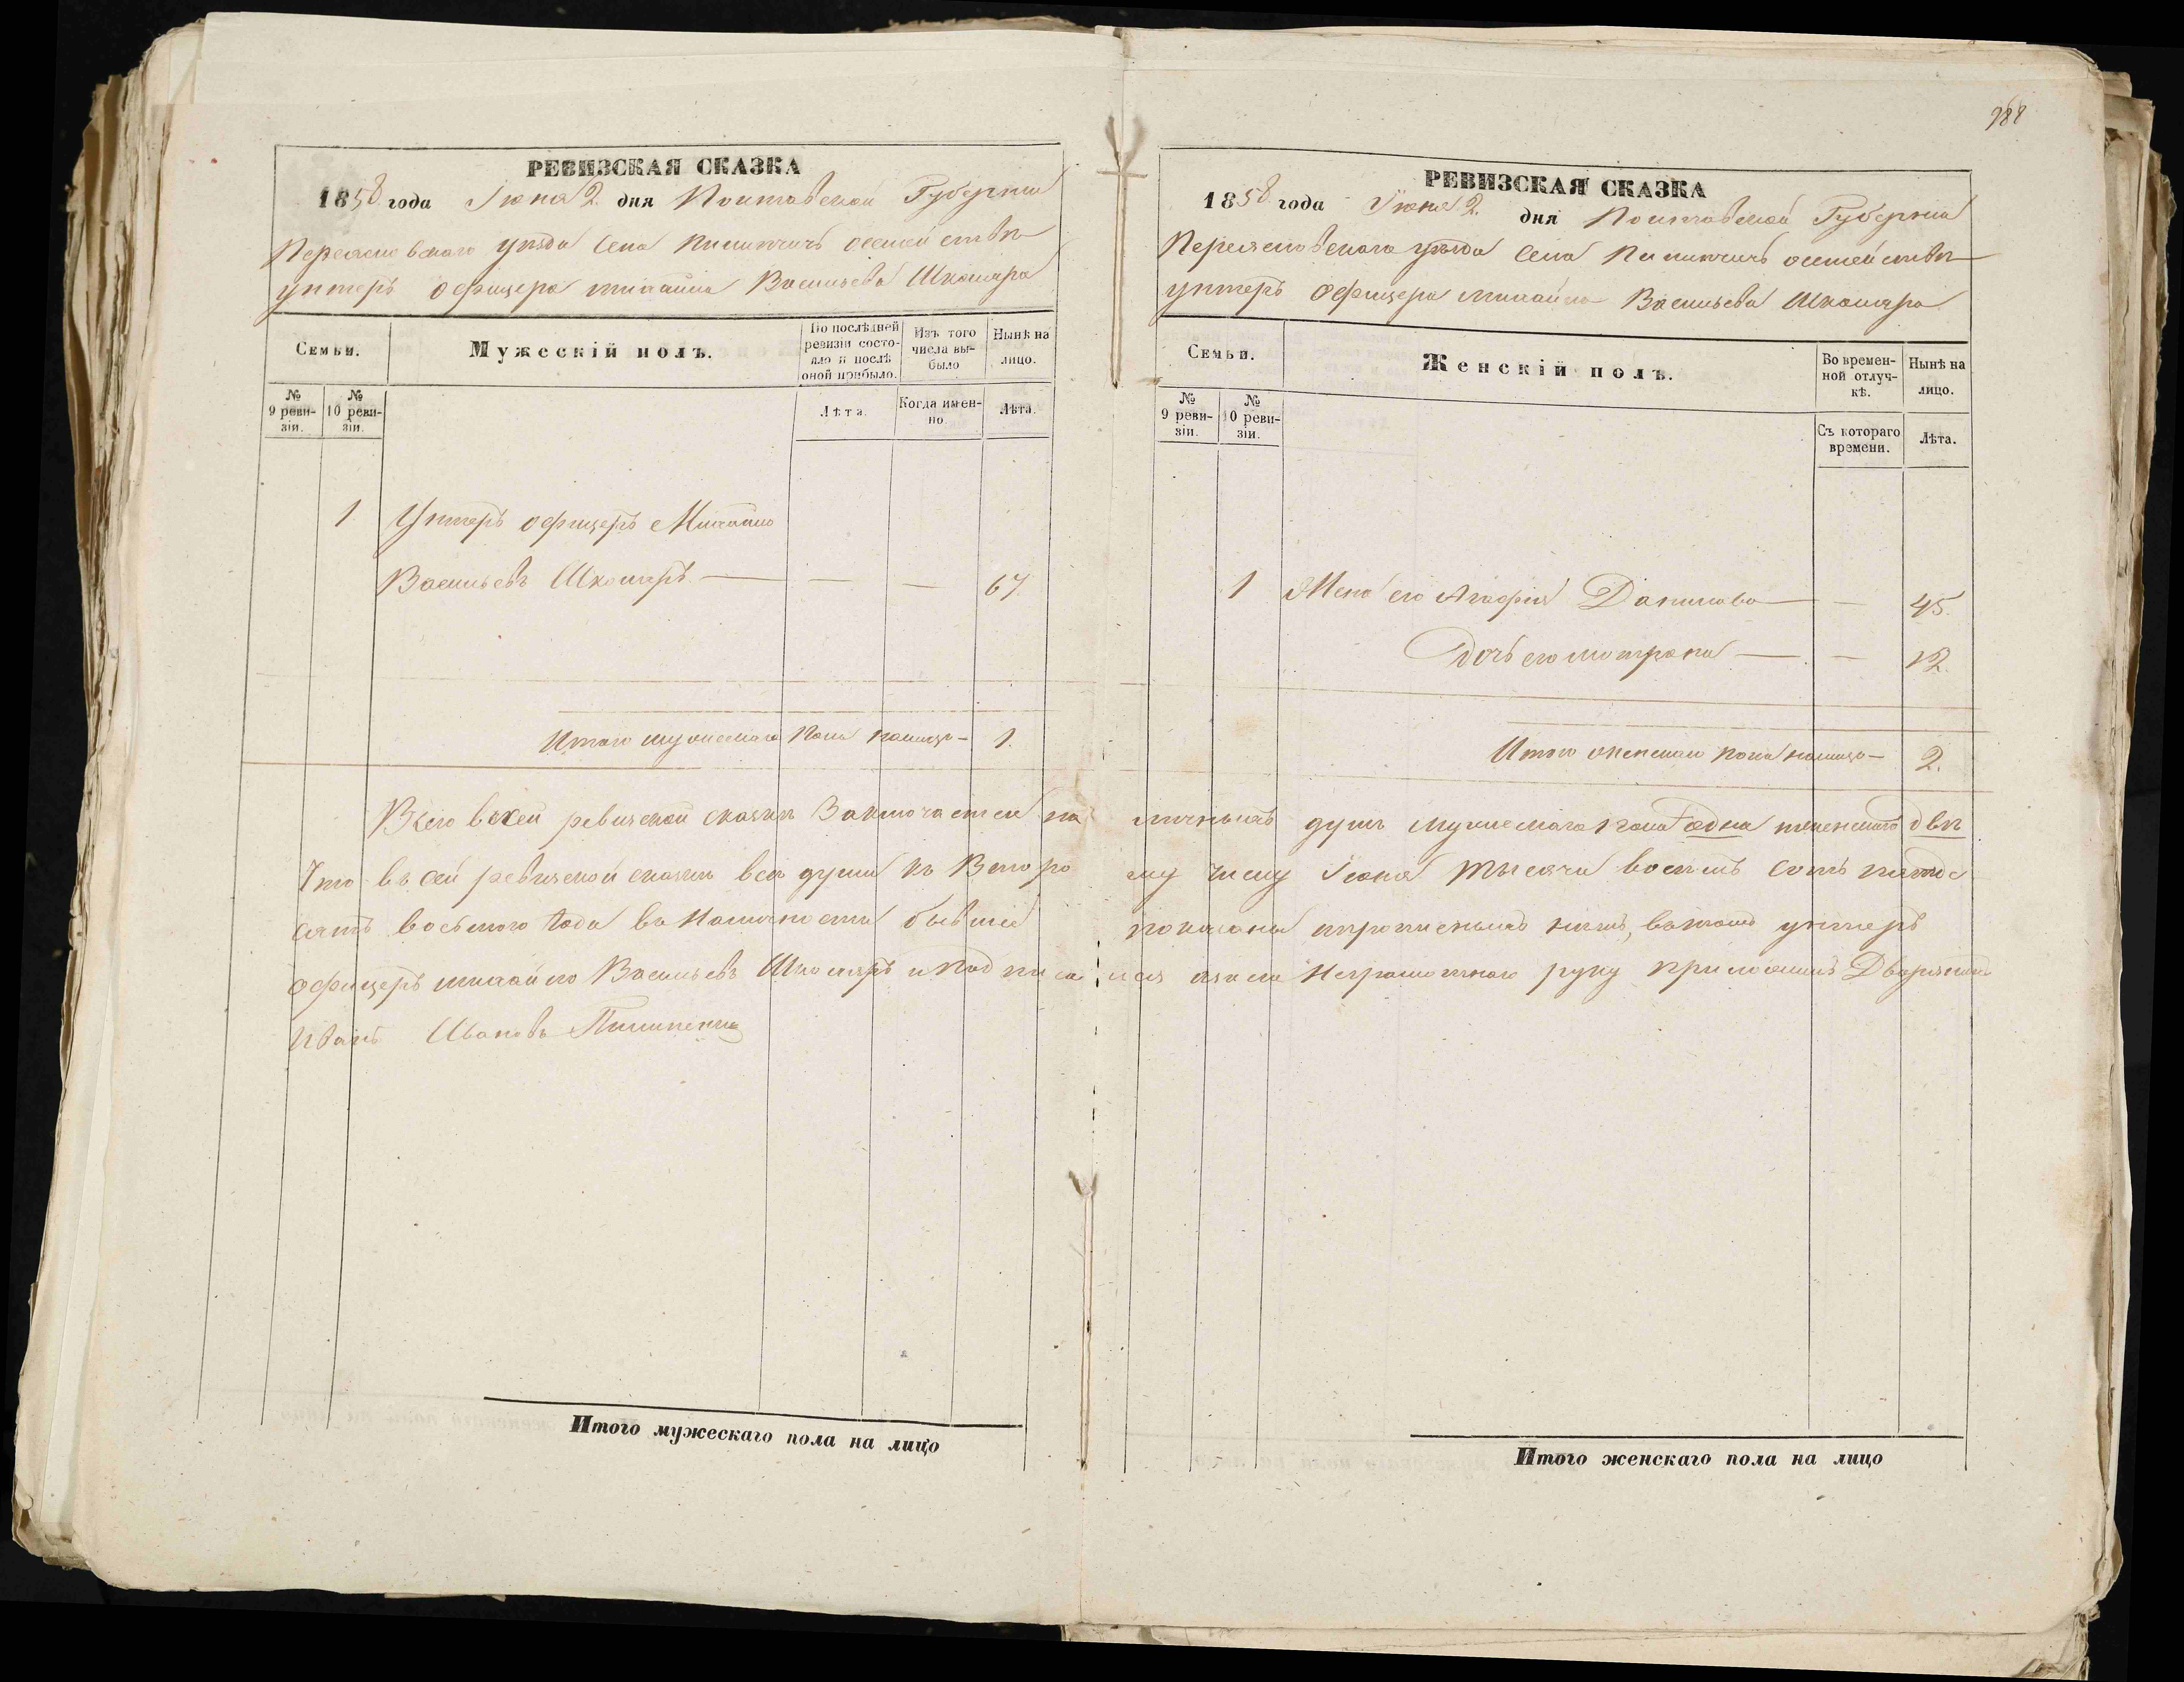 988
РЕВИЗСКАЯ СКАЗКА
1858 года Июня 2. дня Полтавской Губернии
Переясловскаго уѣзда Села о семействѣ
унтеръ офицера михайла Васильева Шкляра
Семьи.
Мужескій полъ.
По послѣдней ревизіи состояло и послѣ оной прибыло.
Изъ того числа выбыло
Нынѣ на лицо.
№ 9 ревизіи.
№ 10 ревизіи.
Лѣта.
Когда именно.
Лѣта.
1 Унтеръ офицеръ Михайло
Васильевъ — — — 67.
Итого мужескаго пола налицо — 1.
РЕВИЗСКАЯ СКАЗКА
1858 года Іюня 2. дня Полтавской Губерніи
Переясловскаго уѣзда Села о семействѣ
унтеръ Офицера михайла Васильева
Семьи.
Женскій полъ.
Во временной отлучкѣ.
Нынѣ на лицо.
№ 9 ревизіи.
№ 10 ревизіи.
Съ котораго времени.
Лѣта.
1 Жена его Агафія Данилова — — 45.
Дочь его мотрона — — 12.
Итого женскаго пола налицо — 2.
Всего всей ревизской сказкѣ Заключается на личныхъ душъ мужескаго пола одна женскаго двѣ
Что въ сей ревизской сказкѣ всѣ души къ Второму числу Іюня тысяча восемь сотъ пятдесятъ
восьмого года въ Наличности бывшіе показаны прописныхъ нѣтъ, въ томъ унтеръ
офицеръ михайло Васильевъ и подписался а за него Неграмотнаго руку приложилъ Дворянинъ
Иванъ Ивановъ
Итого мужескаго пола на лицо
Итого женскаго пола на лицо